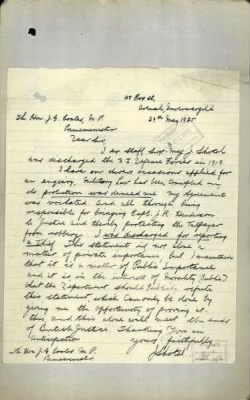 Box St,
Invercargill
29th May 1935
The Hon. J. G. Coates, M. P.
Dear Sir,
I ex Staff Sgt. Mjr. J. Shotel
was discharged the N. Z. Defence Forces in 1919.
I have on occasions applied for
an enquiry. Military Law has been
protection was denied me my Agreement
was violated. And all through being
responsible for bringing Capt. J. R. Henderson
to Justice and thereby protecting the Taxpayer
from robbery. I was discharged for reporting
a Thief. This statement is not alone a
matter of private importance, but I maintain
that it is a matter of Public Importance
and it is in the interests of
that the Department should Publicly refute
this statement, which can only be done by
giving me the opportunity of proving it.
this, and this alone will meet the ends
of British Justice. Thanking You in
anticipation
yours faithfully
J Shotel
The Hon. J. G. Coates M. P.